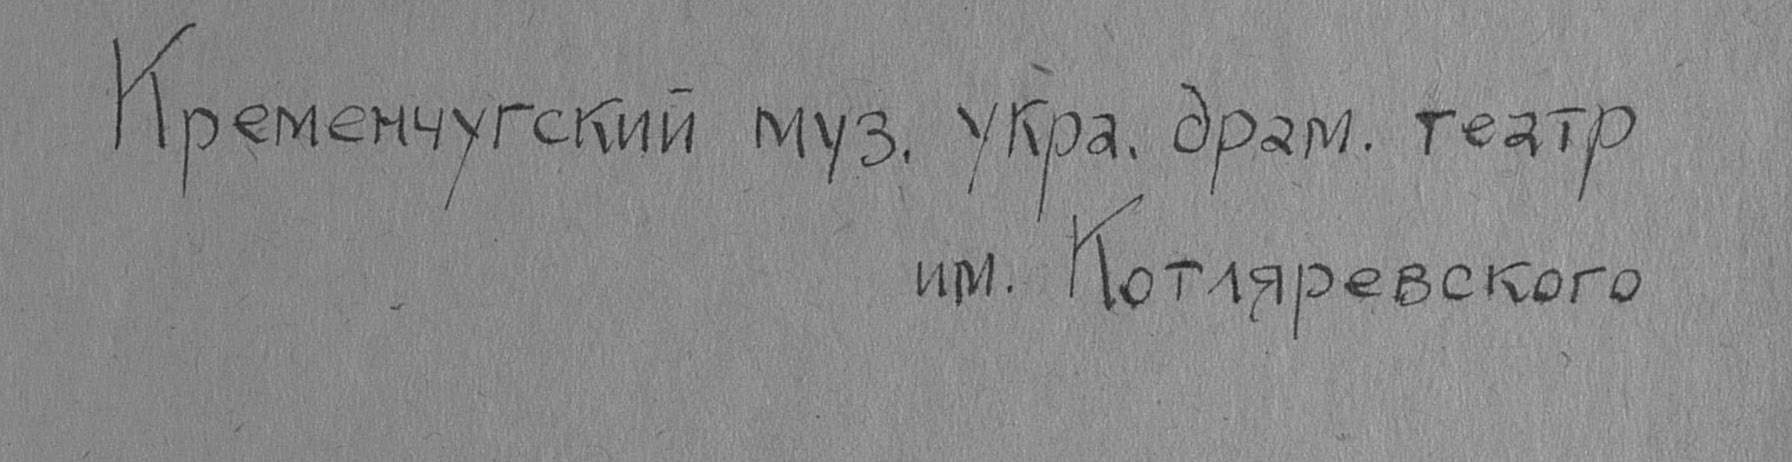 Кременчугский муз. укра. драм. театр
им. Котляревского